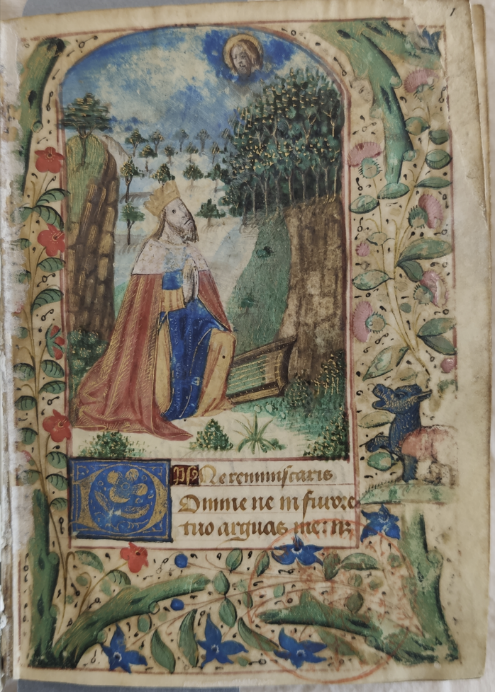 1
Ne reminiscaris
Domine ne in furore
tuo arguas me: